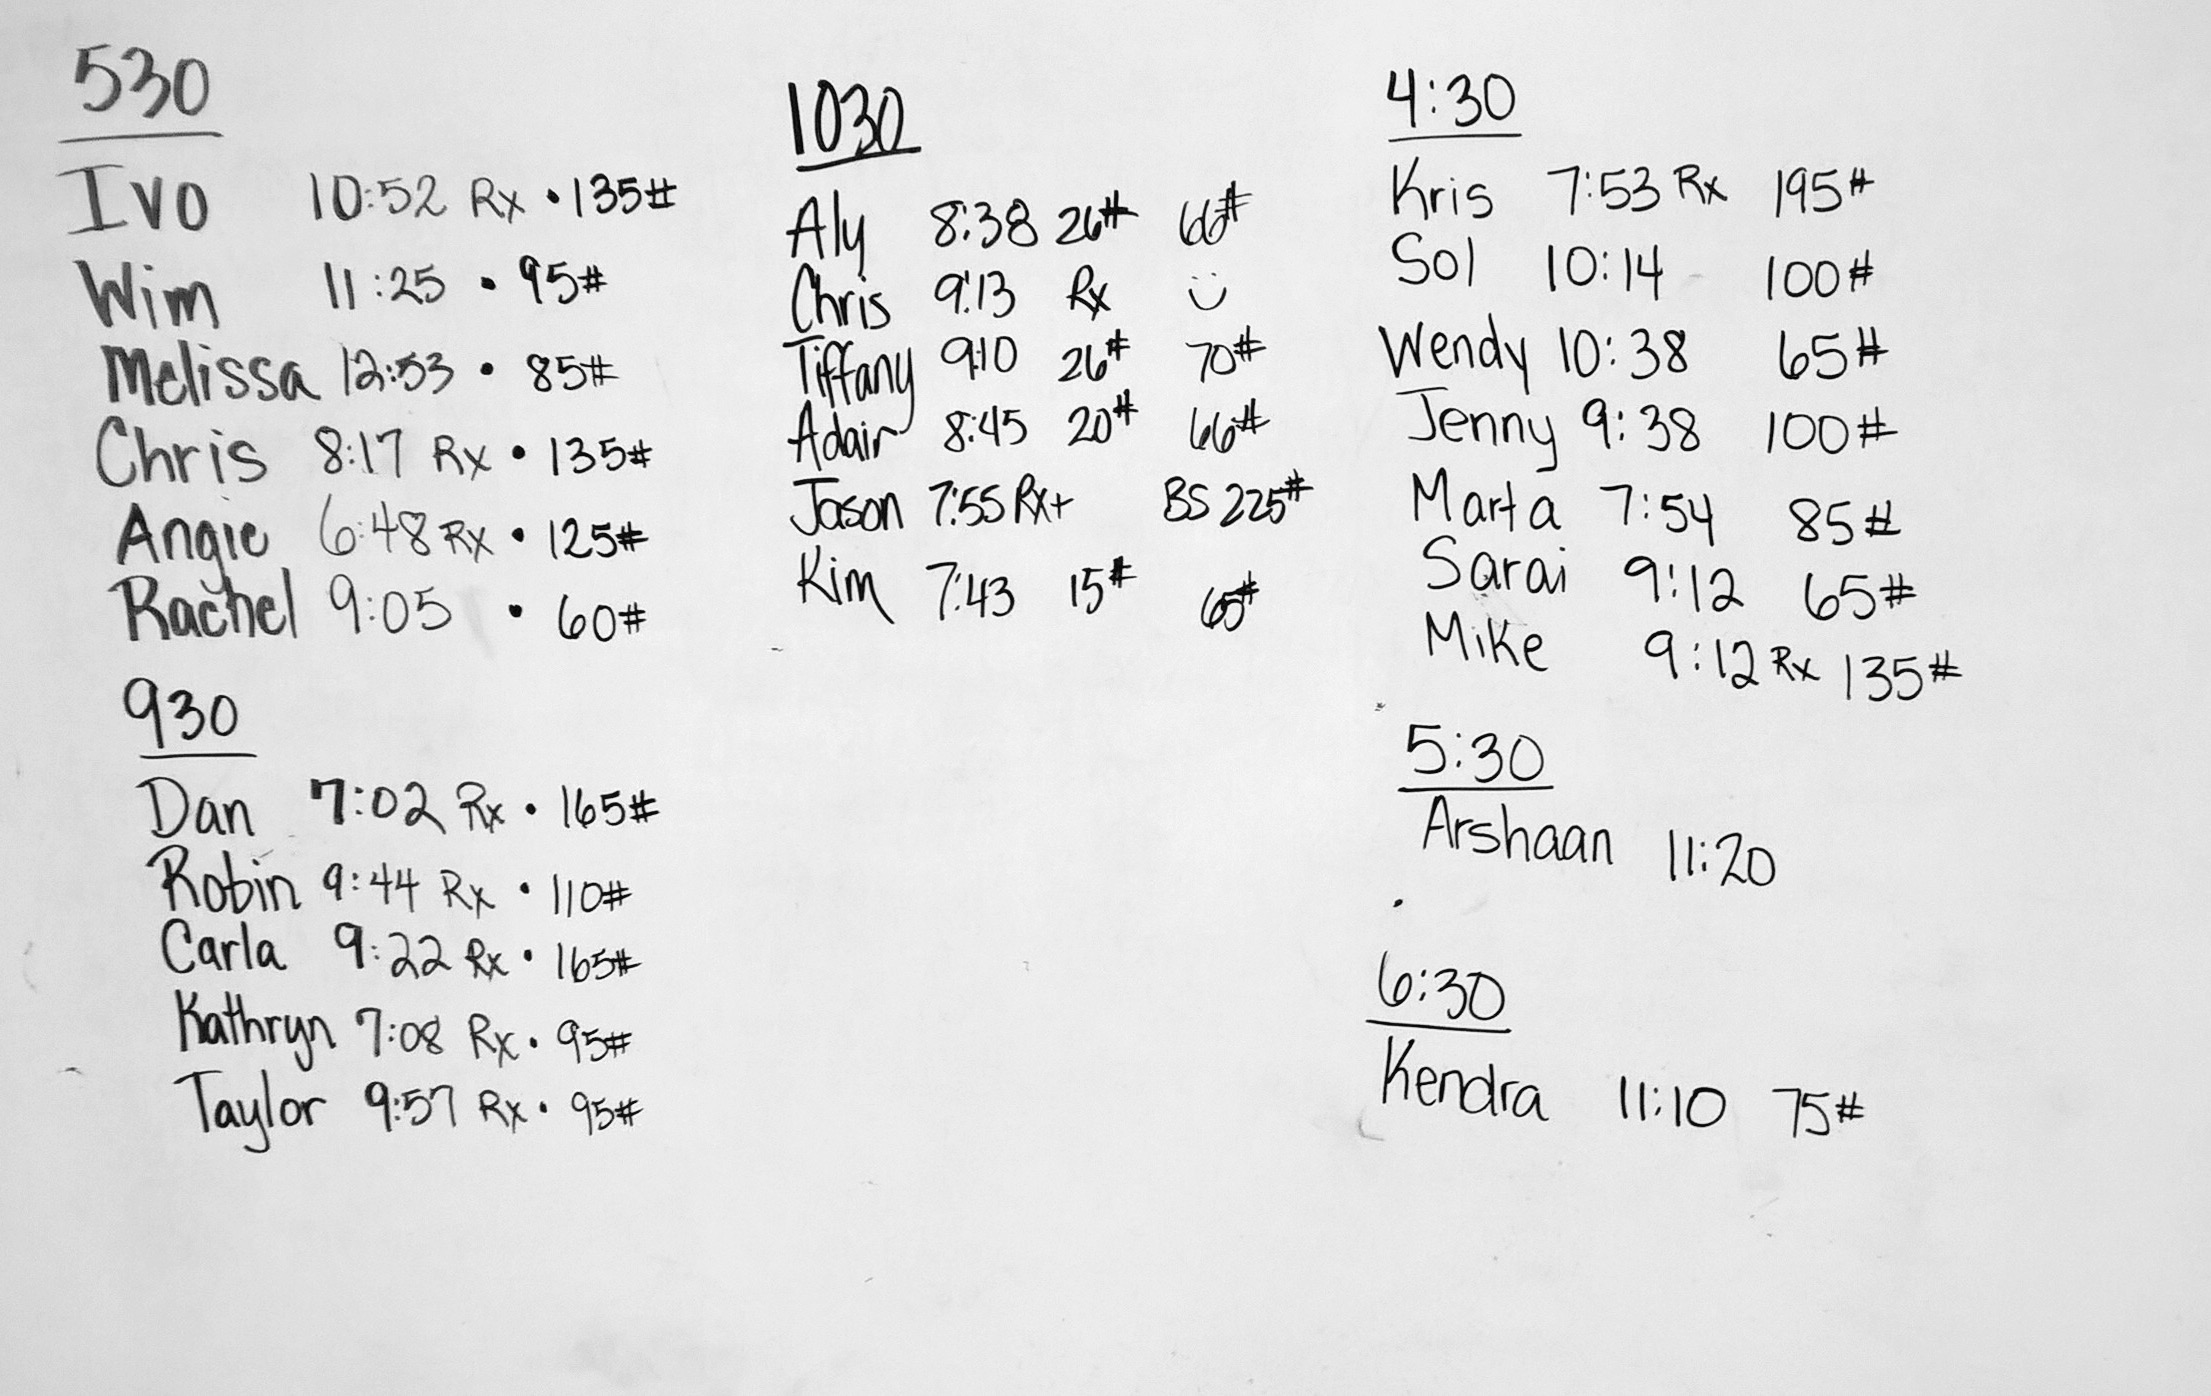 530
Ivo 10:52 Rx • 135#
Wim 11:25 • 95#
Melissa 12:53 • 85#
Chris 8:17 Rx • 135#
Angie 6:48 Rx • 125#
Rachel 9:05 • 60#
930
Dan 7:02 Rx • 165#
Robin 9:44 Rx • 110#
Carla 9:22 Rx • 165#
Kathryn 7:08 Rx • 95#
Taylor 9:57 Rx • 95#
1030
Aly 8:38 26# 66#
Chris 9:13 Rx
Tiffany 9:10 26# 70#
Adair 8:45 20# 66#
Jason 7:55 Rx+ BS 225#
Kim 7:43 15# 65#
4:30
Kris 7:53 Rx 195#
Sol 10:14 100#
Wendy 10:38 65#
Jenny 9:38 100#
Marta 7:54 85#
Sarai 9:12 65#
Mike 9:12 Rx 135#
5:30
Arshaan 11:20
6:30
Kendra 11:10 75#